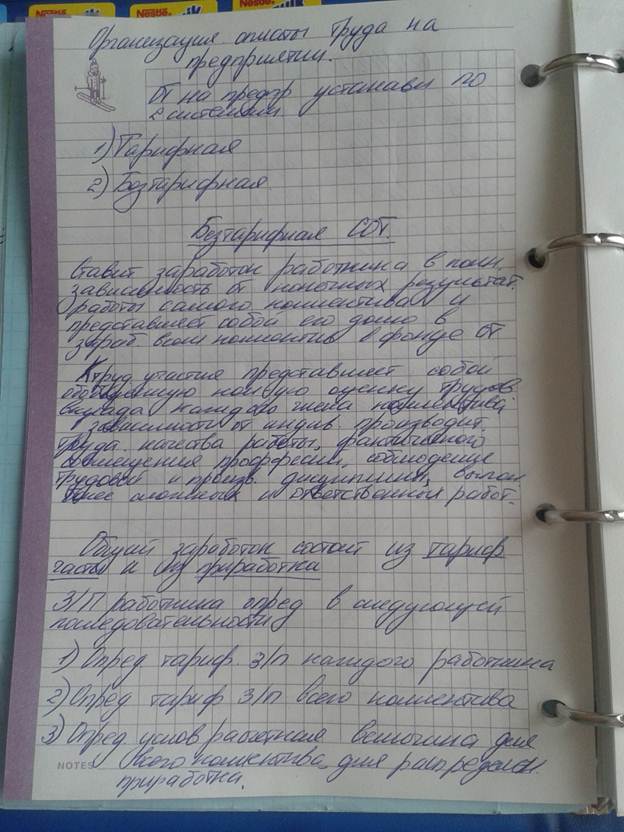 Nestle
Nestle
Nestle
Организация оплаты труда на
предприятии.
ОТ на предпр устанавл по
2 системам
1) Тарифная
2) Безтарифная
Безтарифная СОТ.
Ставит заработок работника в полн.
зависимость от конечных результат.
работы самого коллектива и
представляет собой его долю в
зараб всем коллектив в фонде ОТ
К труд участия представляет собой
обобщенную кол-ую оценку трудов
вклада каждого члена коллектива
в зависимости от индив. производит.
труда, качества работы, фактического
совмещения проффесии, соблюдение
трудовой и произв. дисциплины, выполн
более сложных и ответственной работ.
Общий заработок состоит из тариф
части и из приработка
З/П работника опред в следующей
последовательности
1) Опред тариф. з/п каждого работника
2) Опред тариф з/п всего коллектива
3) Опред услов расчетная величина для
всего коллектива для распределен.
приработка.
NOTES